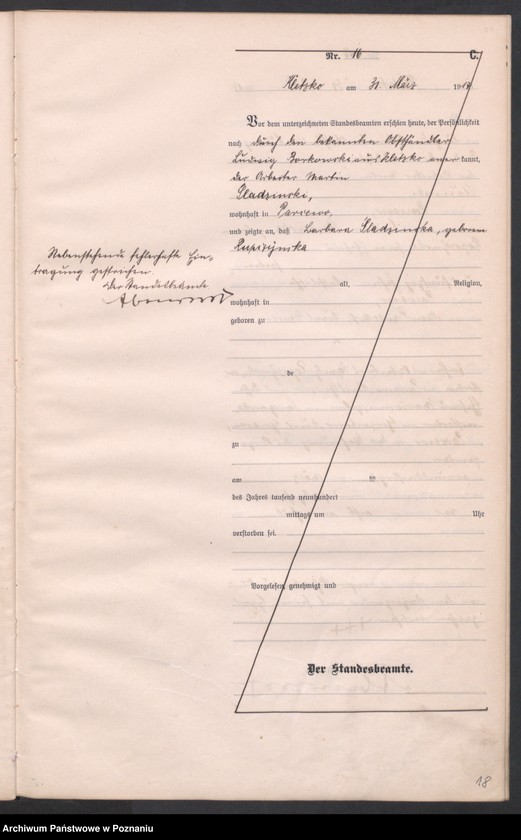 Nr. 16
C.
Kletzko am 31. März 19
Vor dem unterzeichneten Standesbeamten erschien heute, der Persönlichkeit
nach durch den bekannten Obsthändler
Ludwig Borkowski aus Kletzko anerkannt,
der Arbeiter Martin
Sladzinski,
wohnhaft in
und zeigte an, daß Barbara Sladzinska, geborene
Nebenstehende fehlerhafte Ein-
tragung gestrichen.
Der Standesbeamte
alt, Religion,
wohnhaft in
geboren zu
de
zu
am
des Jahres tausend neunhundert
mittags um Uhr
verstorben sei.
Vorgelesen, genehmigt und
Der Standesbeamte.
18
Archiwum Państwowe w Poznaniu